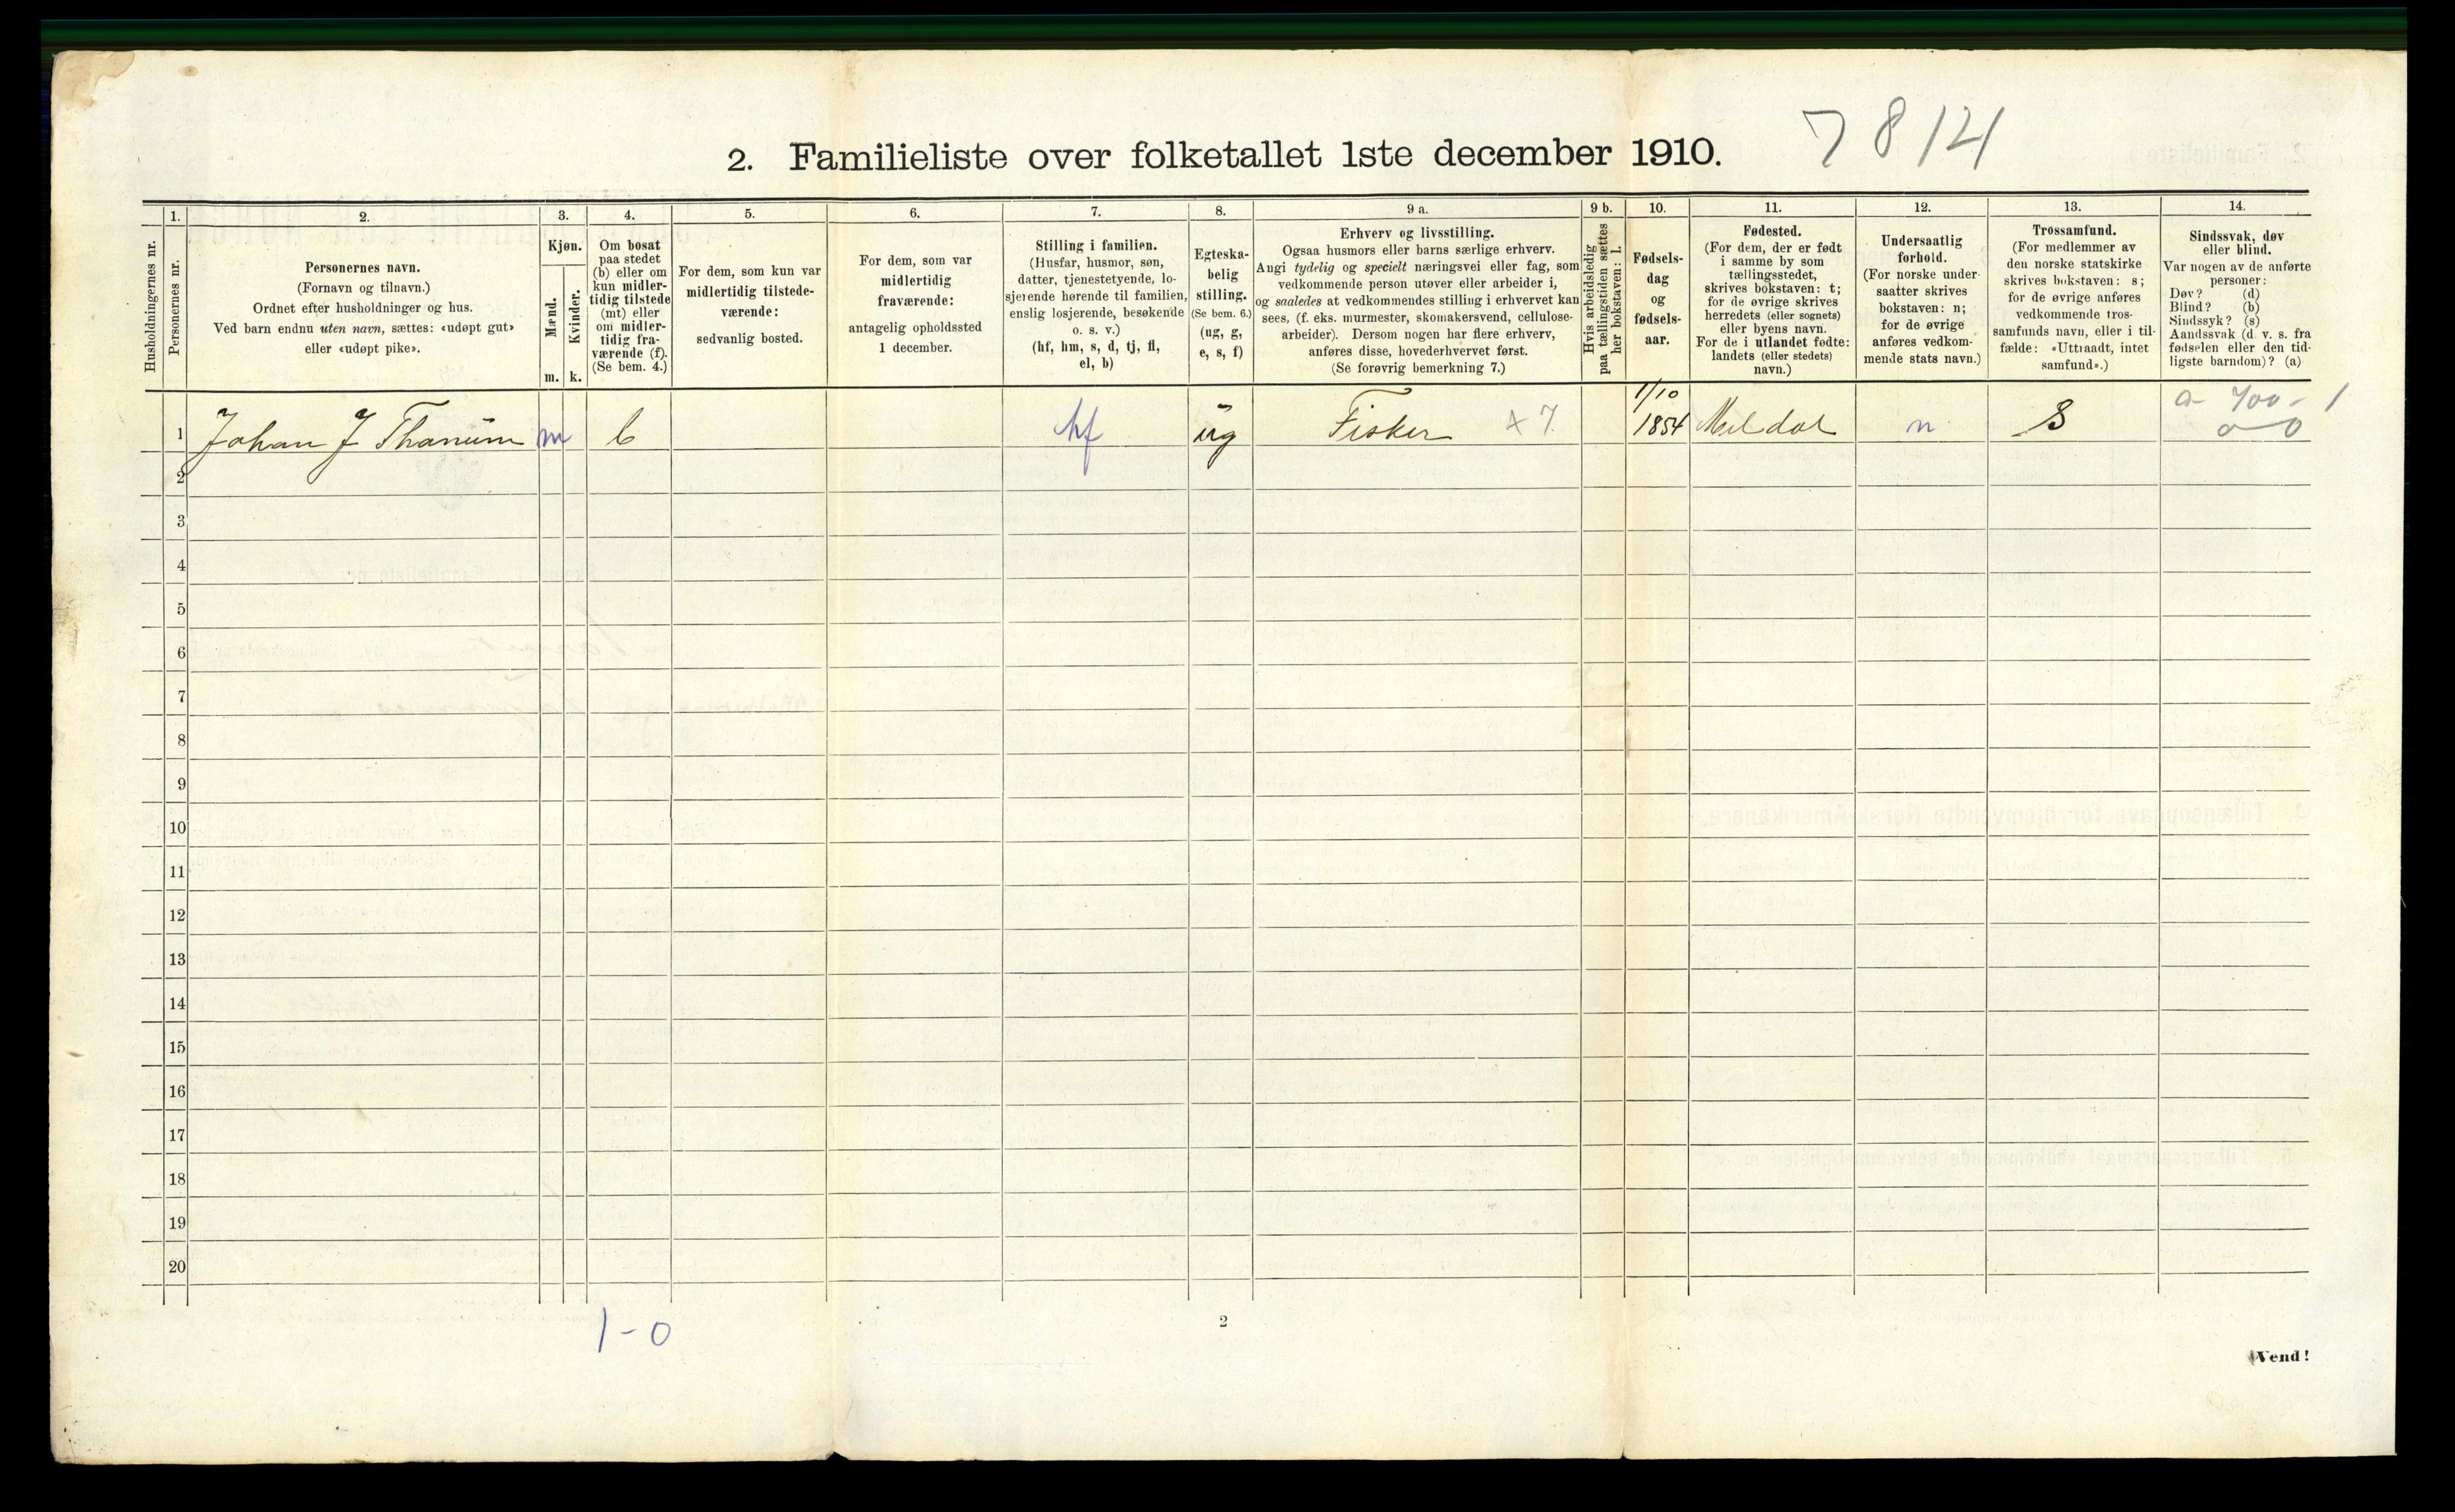 7 8 14
2. Familieliste over folketallet 1ste december 1910.
1. 2. 3. 4. 5. 6. 7. 8. 9 a. 9 b. 10. 11. 12. 13. 14.
Husholdningernes nr.
Personernes nr.
Personernes navn.
(Fornavn og tilnavn.)
Ordnet efter husholdninger og hus.
Ved barn endnu uten navn, sættes: «udøpt gut»
eller «udøpt pike».
Kjøn.
Mænd.
Kvinder.
m. k.
Om bosat
paa stedet
(b) eller om
kun midler-
tidig tilstede
(mt) eller
om midler-
tidig fra-
værende (f).
(Se bem. 4.)
For dem, som kun var
midlertidig tilstede-
værende:
sedvanlig bosted.
For dem, som var
midlertidig
fraværende:
antagelig opholdssted
1 december.
Stilling i familien.
(Husfar, husmor, søn,
datter, tjenestetyende, lo-
sjerende hørende til familien,
enslig losjerende, besøkende
o. s. v.)
(hf, hm, s, d, tj, fl,
el, b)
Egteska-
belig
stilling.
(Se bem. 6.)
(ug, g,
e, s, f)
Erhverv og livsstilling.
Ogsaa husmors eller barns særlige erhverv.
Angi tydelig og specielt næringsvei eller fag, som
vedkommende person utøver eller arbeider i,
og saaledes at vedkommendes stilling i erhvervet kan
sees, (f. eks. murmester, skomakersvend, cellulose-
arbeider). Dersom nogen har flere erhverv,
anføres disse, hovederhvervet først.
(Se forøvrig bemerkning 7.)
Hvis arbeidsledig
paa tællingstiden sættes
her bokstaven: l.
Fødsels-
dag
og
fødsels-
aar.
Fødested.
(For dem, der er født
i samme by som
tællingsstedet,
skrives bokstaven: t;
for de øvrige skrives
herredets (eller sognets)
eller byens navn.
For de i utlandet fødte:
landets (eller stedets)
navn.)
Undersaatlig
forhold.
(For norske under-
saatter skrives
bokstaven: n;
for de øvrige
anføres vedkom-
mende stats navn.)
Trossamfund.
(For medlemmer av
den norske statskirke
skrives bokstaven: s;
for de øvrige anføres
vedkommende tros-
samfunds navn, eller i til-
fælde: «Uttraadt, intet
samfund».)
Sindssvak, døv
eller blind.
Var nogen av de anførte
personer:
Døv? (d)
Blind? (b)
Sindssyk? (s)
Aandssvak (d. v. s. fra
fødselen eller den tid-
ligste barndom)? (a)
1 Johan J Thanum m b hf ug Fisker 1/10 1854 Meldal n S
2
3
4
5
6
7
8
9
10
11
12
13
14
15
16
17
18
19
20
1-0
2
Vend!